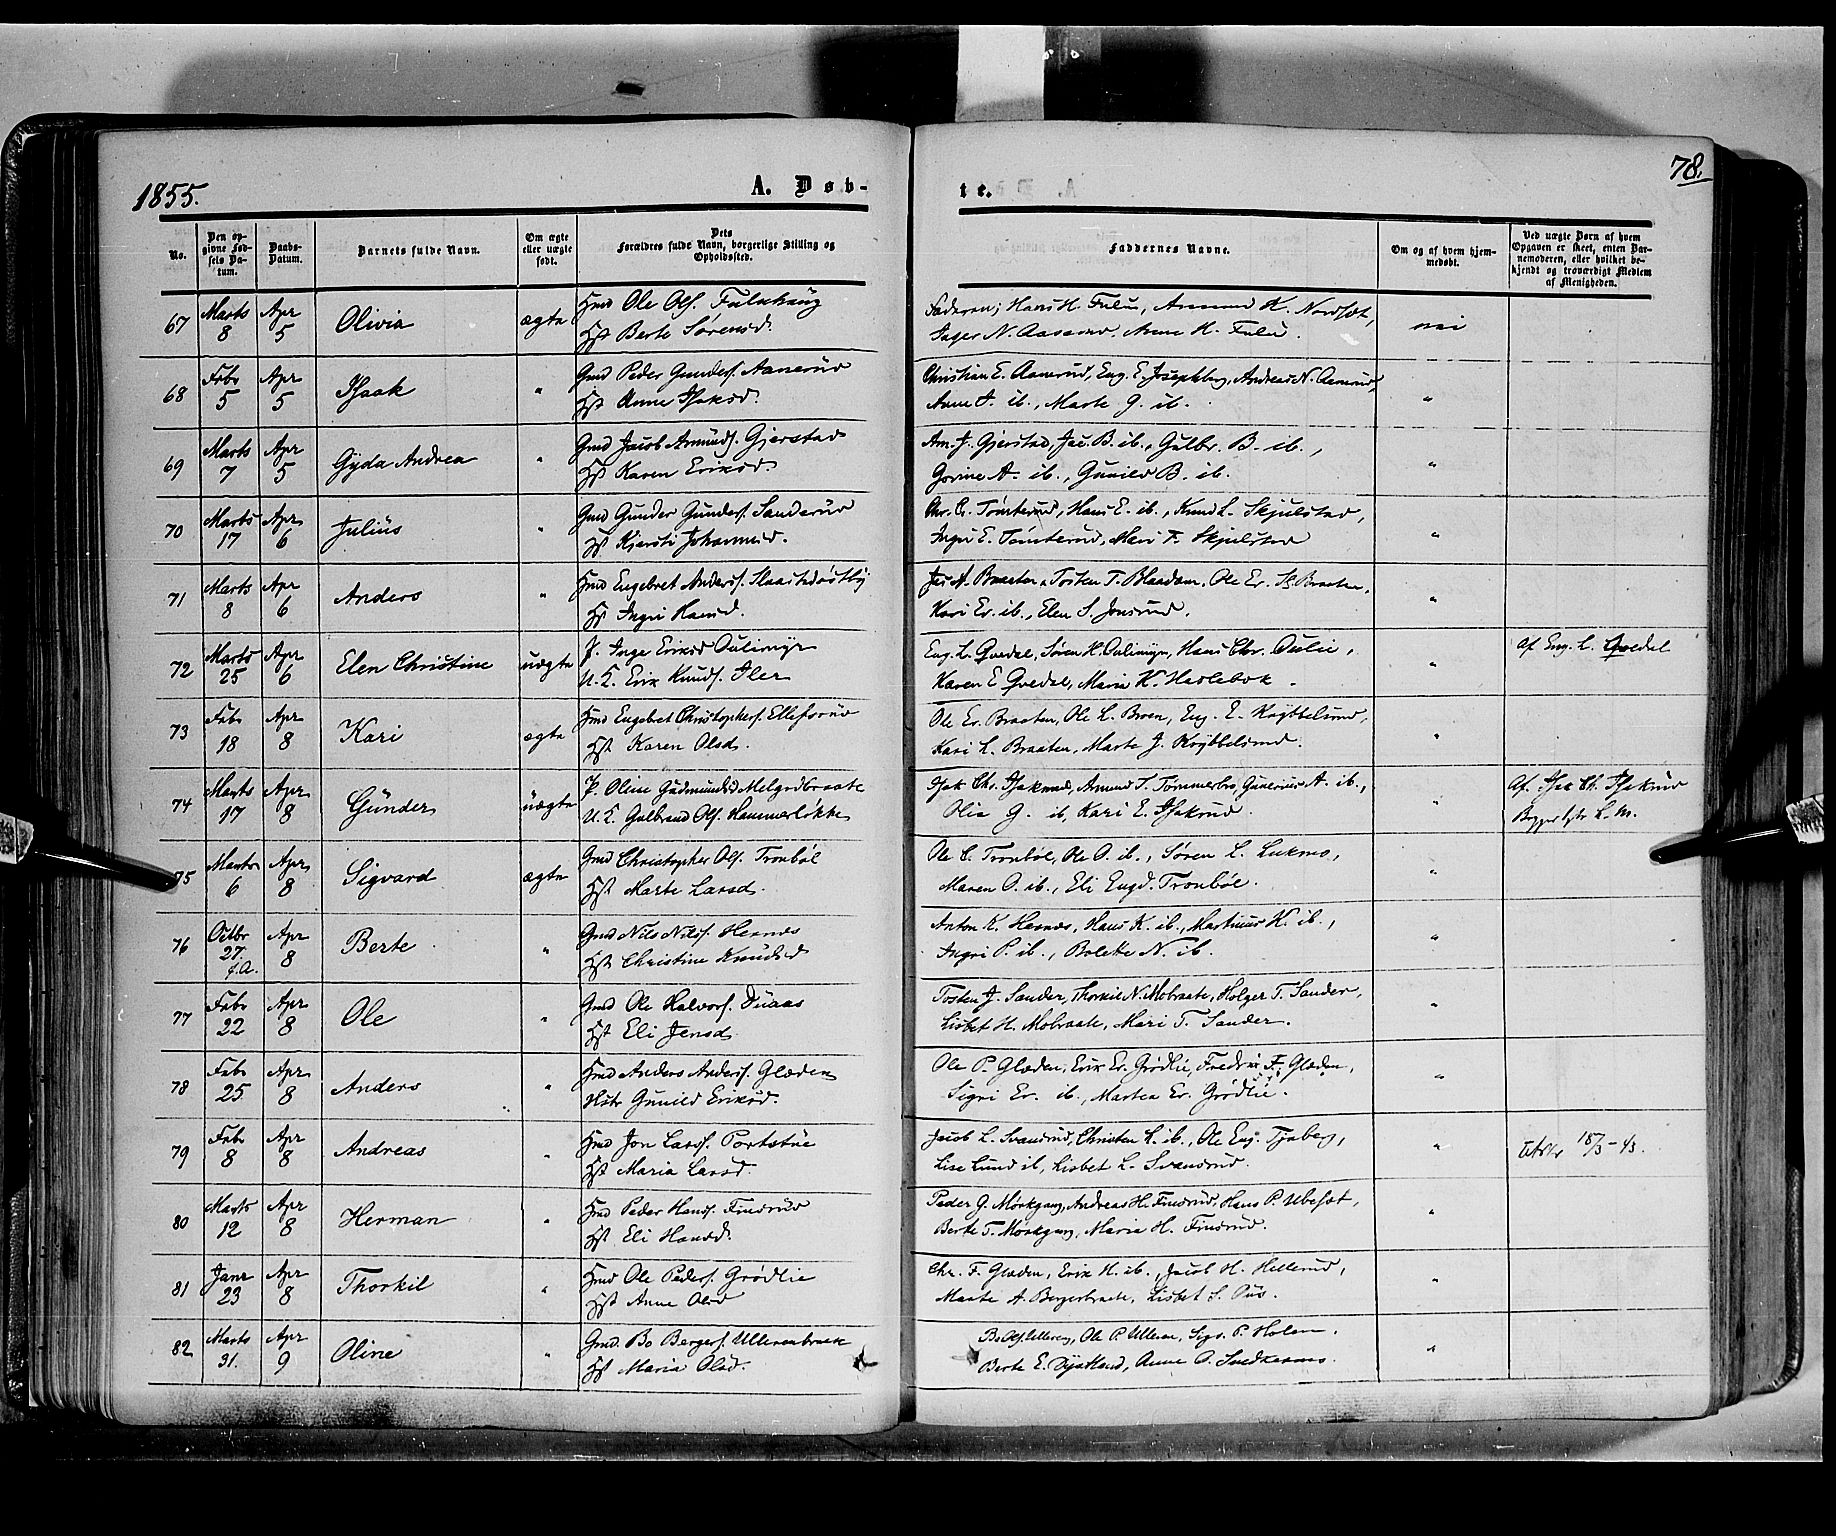 1855.
A. Døb-
te.
78.
No.
Den op-
givne Fød-
sels Da-
tum.
Daabs-
Datum.
Barnets fulde Navn.
Om ægte
eller uægte
født.
Dets
Forældres fulde Navn, borgerlige Stilling og
Opholdssted.
Faddernes Navne.
Om og af hvem hjem-
medøbt.
Ved uægte Børn af hvem
Opgaven er skeet, enten Bar-
nemoderen, eller hvilket be-
kjendt og troværdigt Medlem
af Menigheden.
67 Marts 8 Apr 5 Olivia ægte
Ole Ols.
Berte Sørensd.
Faderen, Hans H. Fulu, Amund K. Nordsæt,
N. Aaserud, Anne H. Fulu.
nei
68 Febr 5 Apr 5 Isaak "
Gmd Peder Gunders. Aamerud
Hst Anne Isaksd.
Christian E. Aamerud, Eng. E. Josephberg, Andreas N. Aamrud,
Anne J. ib., Marte G. ib.
"
69 Marts 7 Apr 5 Gyda Andrea "
Gmd Jacob Amunds. Gjerstad
Hst Karen Eriksd.
Am. J. Gjerstad, Jac. B. ib., Gulbr. B. ib.,
Gorine A. ib., Gunild B. ib.
"
70 Marts 17 Apr 6 Julius "
Gmd Gunder Gunders. Sanderud
Hst Kjersti Johannesd.
Chr. E. Tømterud, Hans E. ib., Knud L. Skjulstad,
Ingri E. Tømterud, Mari T. Skjulstad
"
71 Marts 8 Apr 6 Anders "
Engebret Anders.
Hst Ingri Hansd.
Braaten, Tosten T. Blaadam, Ole Er. Braaten,
Kari Er. ib., Elen S. Jonsrud.
"
72 Marts 25 Apr 6 Elen Christine uægte
P. Inge Eriksd Oulimyr
U.K. Erik Knuds. Iler
Eng. L. Qvedal, Søren H. Oulimyr, Hans Chr. Oulie,
Karen E. Qvedal, Maria K. Haslebok.
"
Af Eng. L. Qvedal
73 Febr 18 Apr 8 Kari ægte
Engebret Christophers. Ellefsrud
Hst Karen Olsd.
Ole Er. Braaten, Ole L. Broen, Eng. E.
Kari L. Braaten, Marte J.
"
74 Marts 17 Apr 8 Gunder uægte
P. Oline Gudmundsd Melgodbraate
U.K. Gulbrand Ols. Hammerløkke
Isak Chr. Isakrud, Amund T. Tømmerbro, Gunerius A. ib.,
Olia G. ib, Kari E. Isakrud.
"
Af. Isak Ch. Isakrud
L. M.
75 Marts 6 Apr 8 Sigvard ægte
Gmd Christopher Ols. Tronbøl
Hst Marte Larsd.
Ole C. Tronbøl, Ole O. ib., Søren L. Lukmo,
Maren O. ib., Eli Engd. Tronbøl.
"
76 Octbr 27. f.A. Apr 8 Berte "
Gmd Nils Nils. Hernes
Hst Christine Knudsd
Anton K. Hernes, Hans K. ib., Martinus K. ib.,
Ingri P. ib., Bolette N. ib.
"
77 Febr 22 Apr 8 Ole "
Gmd Ole Halvors. Duaas
Hst Eli Jensd
Tosten J. Sander, Thorkil N. Mobraate, Holger T. Sander,
Lisbet H. Mobraate, Mari T. Sander.
"
78 Febr 25 Apr 8 Anders "
Anders Anders. Glæden
Hstr Gunild Eriksd.
Ole P. Glæden, Erik Er. Grødlie, Fredrik F. Glæden,
Sigri Er. ib., Martea Er. Grødlie.
"
79 Febr 8 Apr 8 Andreas "
Jon Larss. Portstue
Hst Maria Larsd.
Jacob L. Svandrud, Christen L. ib., Ole Eng. Tjuberg,
Lise Lund ib, Lisbet L. Svandrud.
"
18/3-43.
80 Marts 12 Apr 8 Herman "
Peder Hans. Finsrud
Hst Eli Hansd.
Peder G. Mørkgang, Andreas H. Finsrud, Hans P. Ubesæt,
Berte T. Mørkgang, Maria H. Finsrud.
"
81 Janr 23 Apr 8 Thorkil "
Ole Peders. Grødlie
Hst Anne Olsd
Chr. F. Glæden, Erik H. ib., Jacob H. Hellerud,
Marte A. Bergerbraate, Lisbet S.
"
82 Marts 31. Apr 9 Oline "
Gmd. Bo Bergers. Ullernbraate
Hst Maria Olsd.
Ole P. Ulleren, Sigv. P. Holen.
Berte E. Dystland, Anne O. Snedkermo.
"